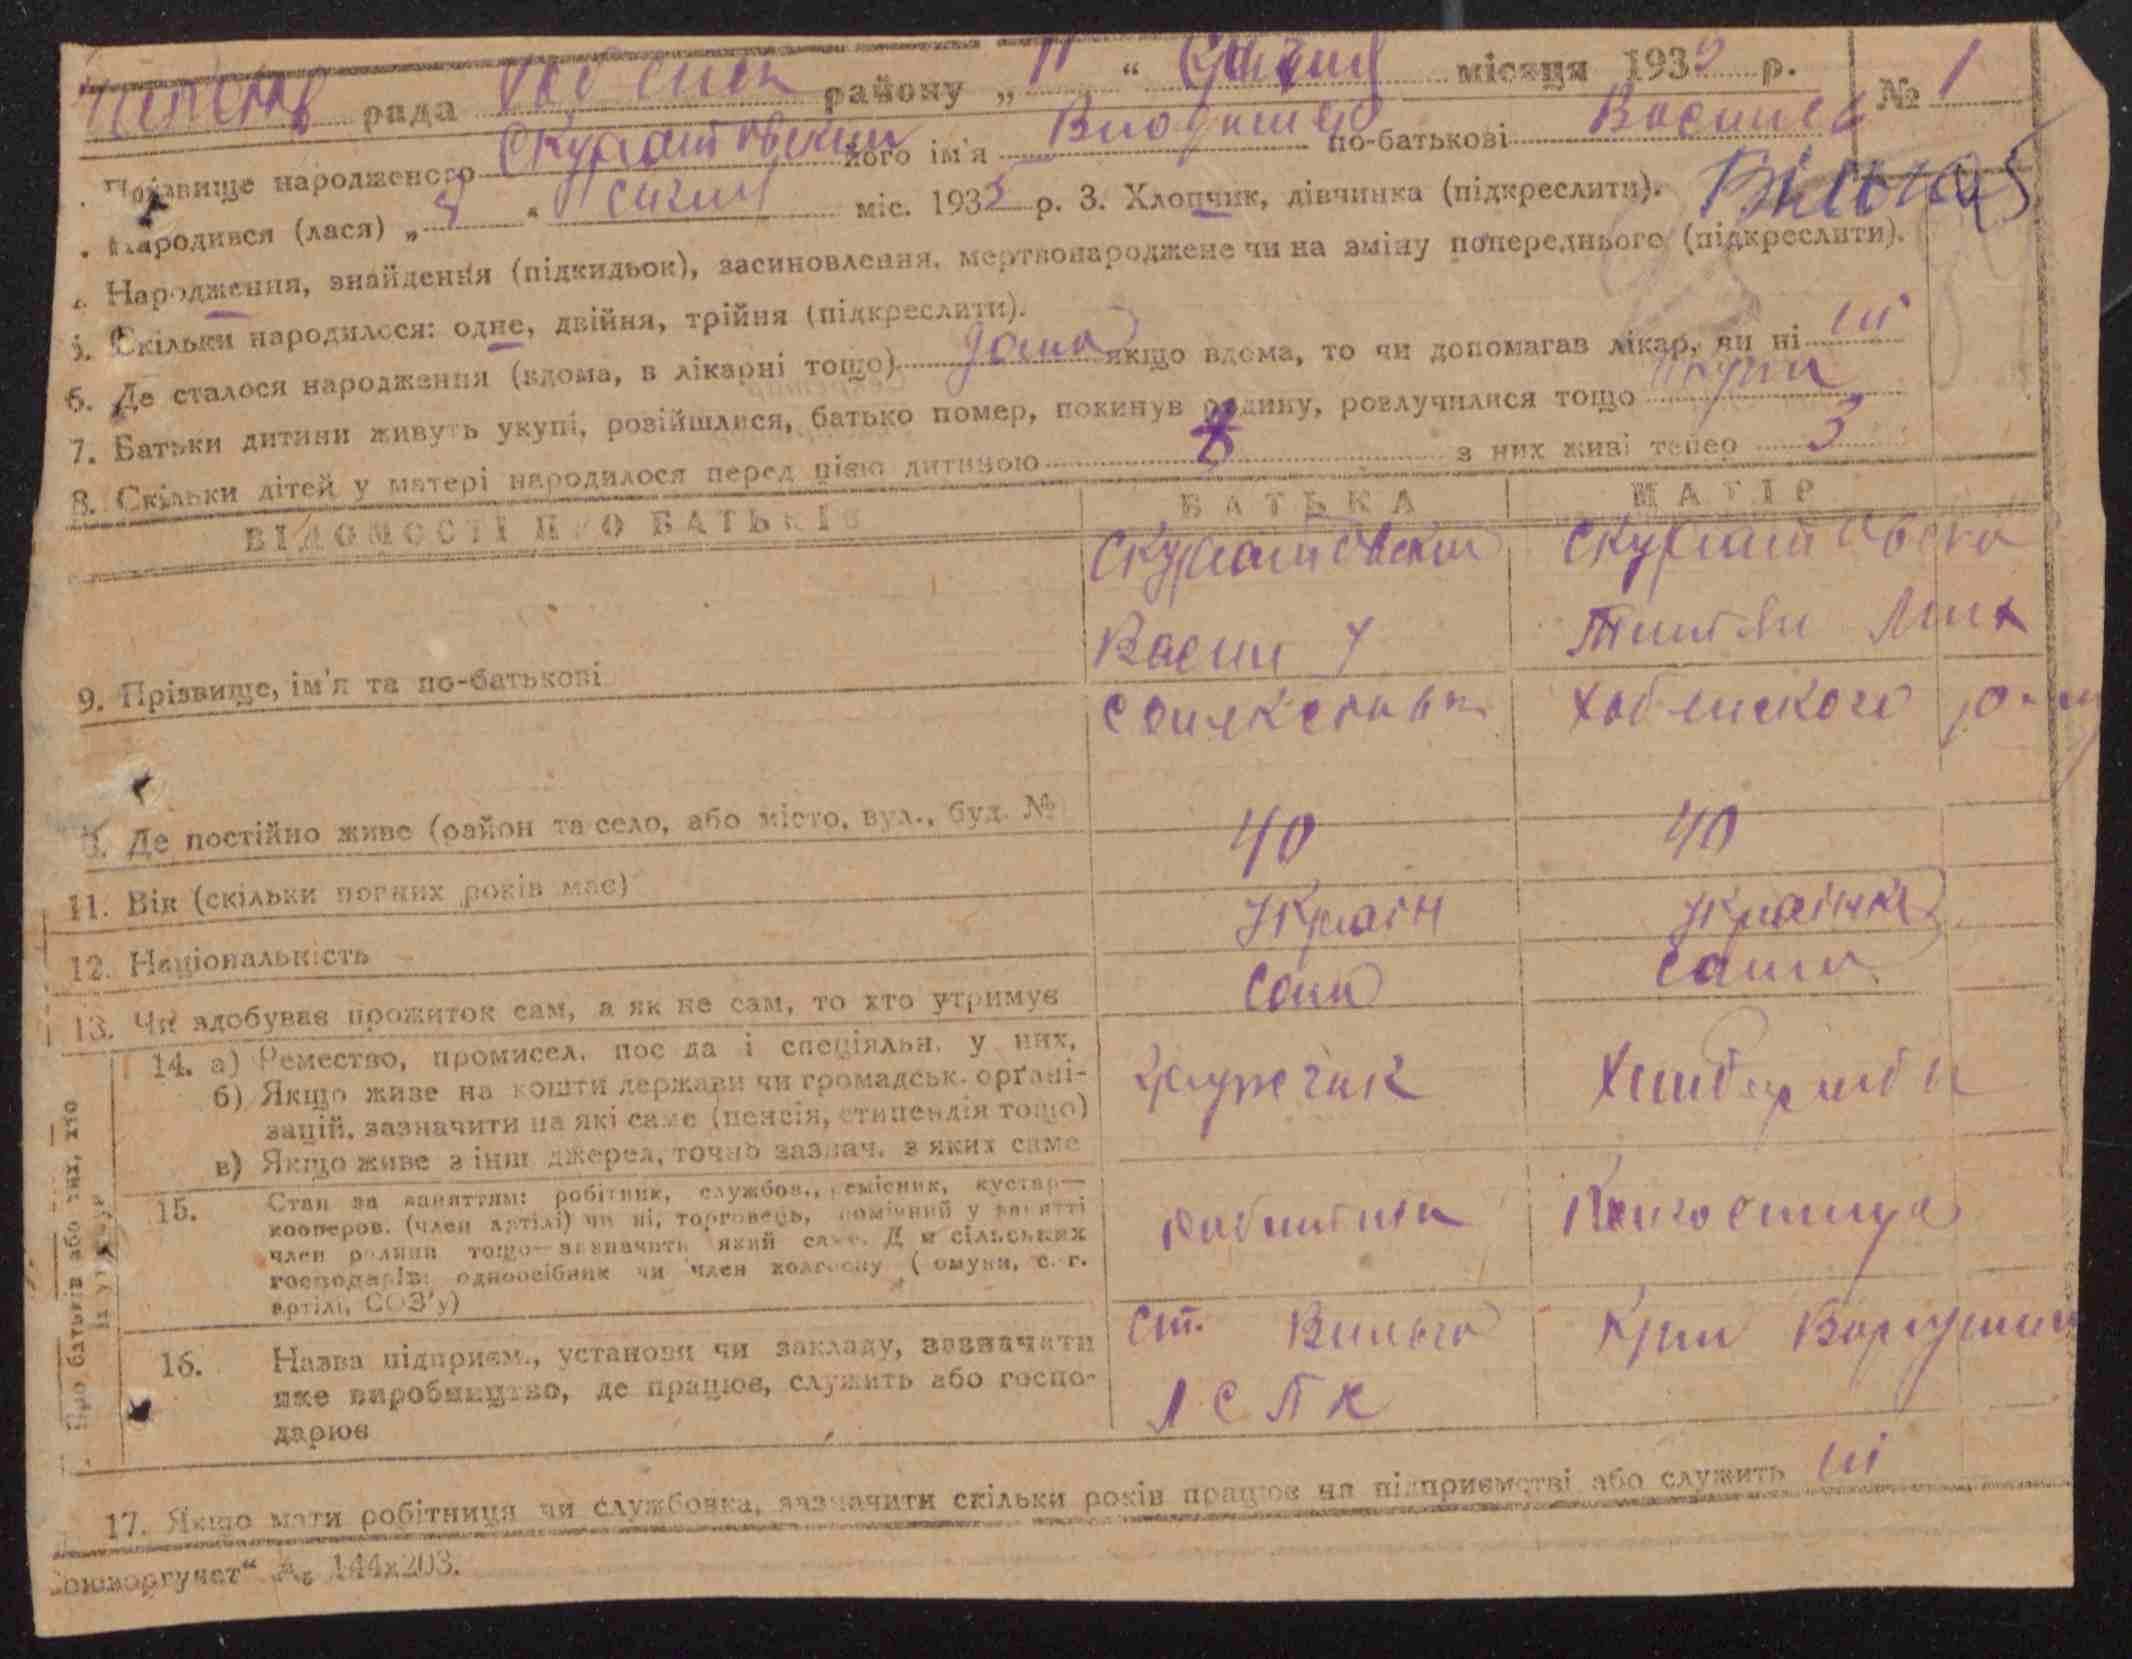 рада Хабенськ району „ 11 “ Січня місяця 1935 р. № 1
Прізвище народженого Скуратовский його ім'я Володимер по-батькові Василів
Народився (лася) „ “ січня міс. 1935 р. 3. Хлопчик, дівчинка (підкреслити).
Народження, знайдення (підкидьок), засиновлення, мертвонароджене чи на зміну попереднього (підкреслити).
5. Скільки народилося: одне, двійня, трійня (підкреслити).
6. Де сталося народження (вдома, в лікарні тощо) дома якщо вдома, то чи допомагав лікар, чи ні ні
7. Батьки дитини живуть укупі, розійшлися, батько помер, покинув родину, розлучилися тощо
8. Скільки дітей у матері народилося перед цією дитиною з них живі тепер 3
ВІДОМОСТІ ПРО БАТЬКІВ БАТЬКА МАТІР
Скуратовский Скуратовска
9. Прізвище, ім'я та по-батькові Васил У Мих
Хабенского
Де постійно живе (район та село, або місто, вул., буд. №
11. Вік (скільки повних років має) 40 40
12. Національність Україн Українка
13. Чи здобуває прожиток сам, а як не сам, то хто утримує Сам сама
14. а) Ремество, промисел, посада і спеціяльн. у них,
б) Якщо живе на кошти держави чи громадськ. органі-
зацій, зазначити на які саме (пенсія, стипендія тощо)
в) Якщо живе з інш джерел, точно зазнач. з яких саме
15. Стан за заняттям: робітник, службов., ремісник, кустар—
кооперов. (член артілі) чи ні, торговець, помічний у занятті
член родини тощо—зазначить який саме. Для сільських
господарів: одноосібник чи член колгоспу (комуни, с. г.
артілі, СОЗ'у)
Колгосниця
16. Назва підприєм., установи чи закладу, зазначати
яке виробництво, де працює, служить або госпо-
дарює
ст. Вильча
ЛСПК
17. Якщо мати робітниця чи службовка, зазначити скільки років працює на підприємстві або служить ні
Союзоргучет“ А₆ 144х203.
Про батьків або тих, хто
їх утримує